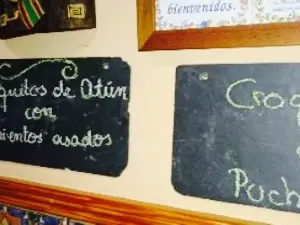 bienvenidos.
quitos de Atún
con
mientos asados
Croq
Puch